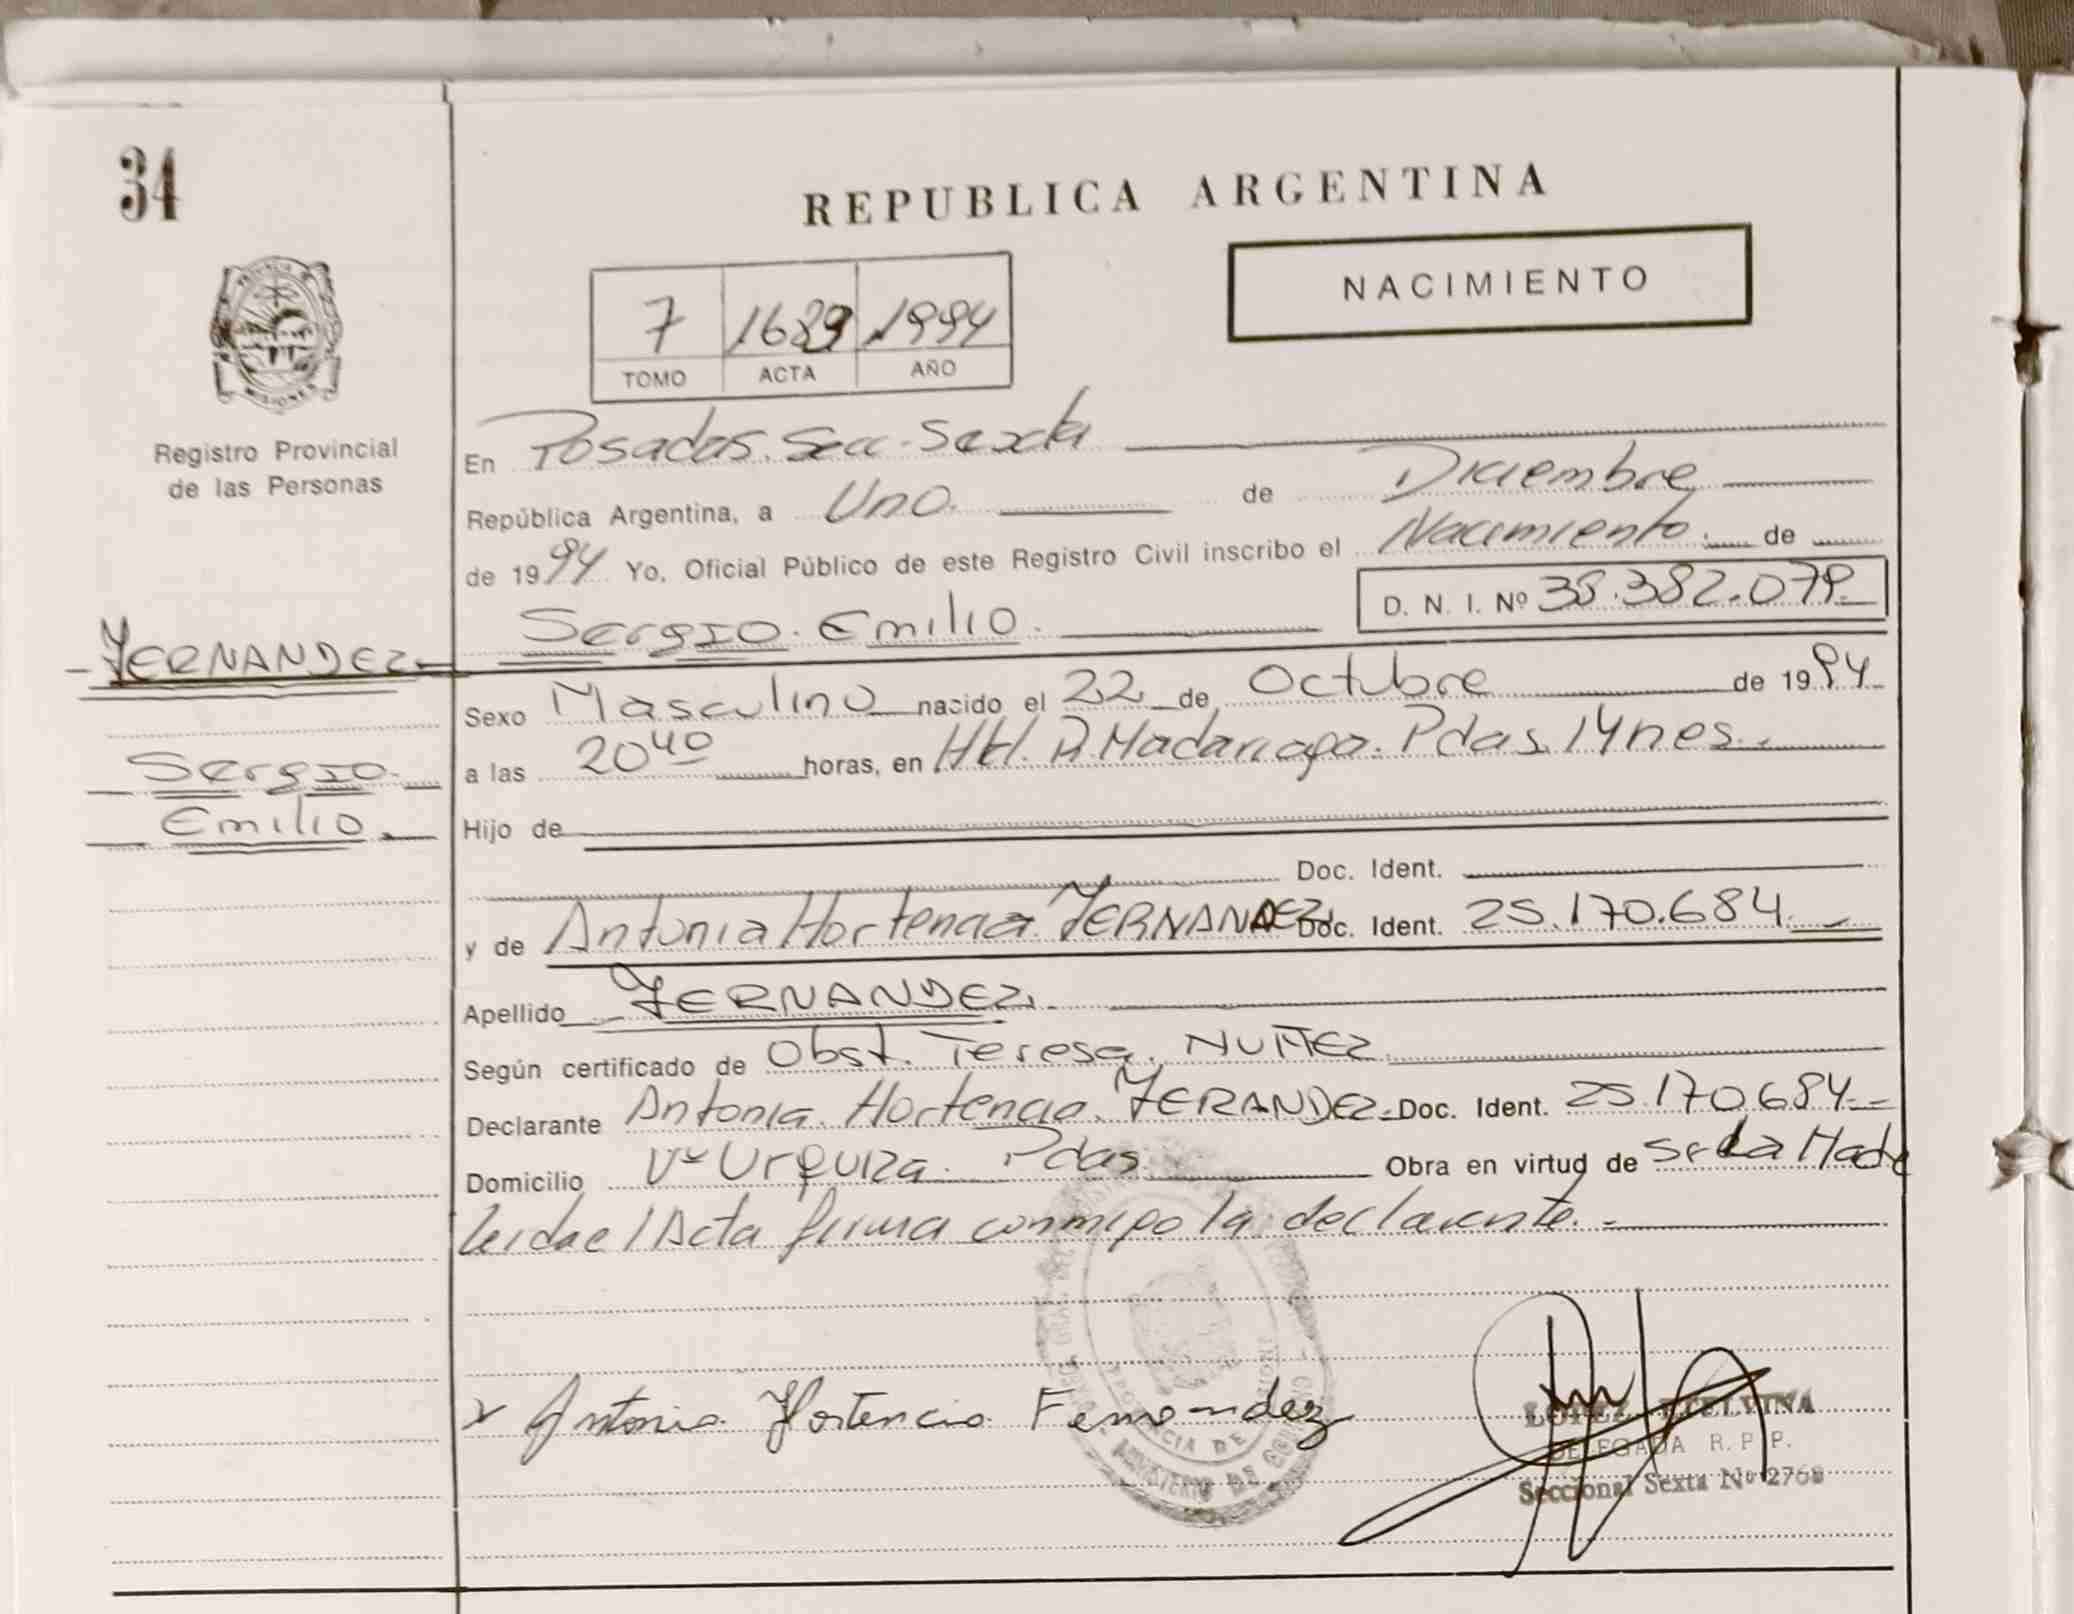 34
REPUBLICA ARGENTINA
NACIMIENTO
7 1689 1994
TOMO ACTA AÑO
Registro Provincial
de las Personas
En Posadas. Secc. Sexta
República Argentina, a Uno. de Diciembre
de 1994 Yo, Oficial Público de este Registro Civil inscribo el Nacimiento de
Sergio. Emilio. D. N. I. Nº 38.382.079.
FERNANDEZ
Sergio
Emilio
Sexo Masculino nacido el 22 de Octubre de 1994
a las 20 40 horas, en Htl. R. Madariaga. Pdas. Mnes.
Hijo de
Doc. Ident.
y de Antonia Hortencia FERNANDEZ Doc. Ident. 25.170.684.
Apellido FERNANDEZ.
Según certificado de Obst. Teresa. NUÑEZ
Declarante Antonia. Hortencia. FERANDEZ. Doc. Ident. 25.170.684
Domicilio Vª Urquiza. Pdas. Obra en virtud de Ser La Madre
leidae l Acta firma conmigo la declarante.
Antonia Hortencia Fernandez
LOPEZ, ETELVINA
DELEGADA R. P. P.
Seccional Sexta Nº 2768